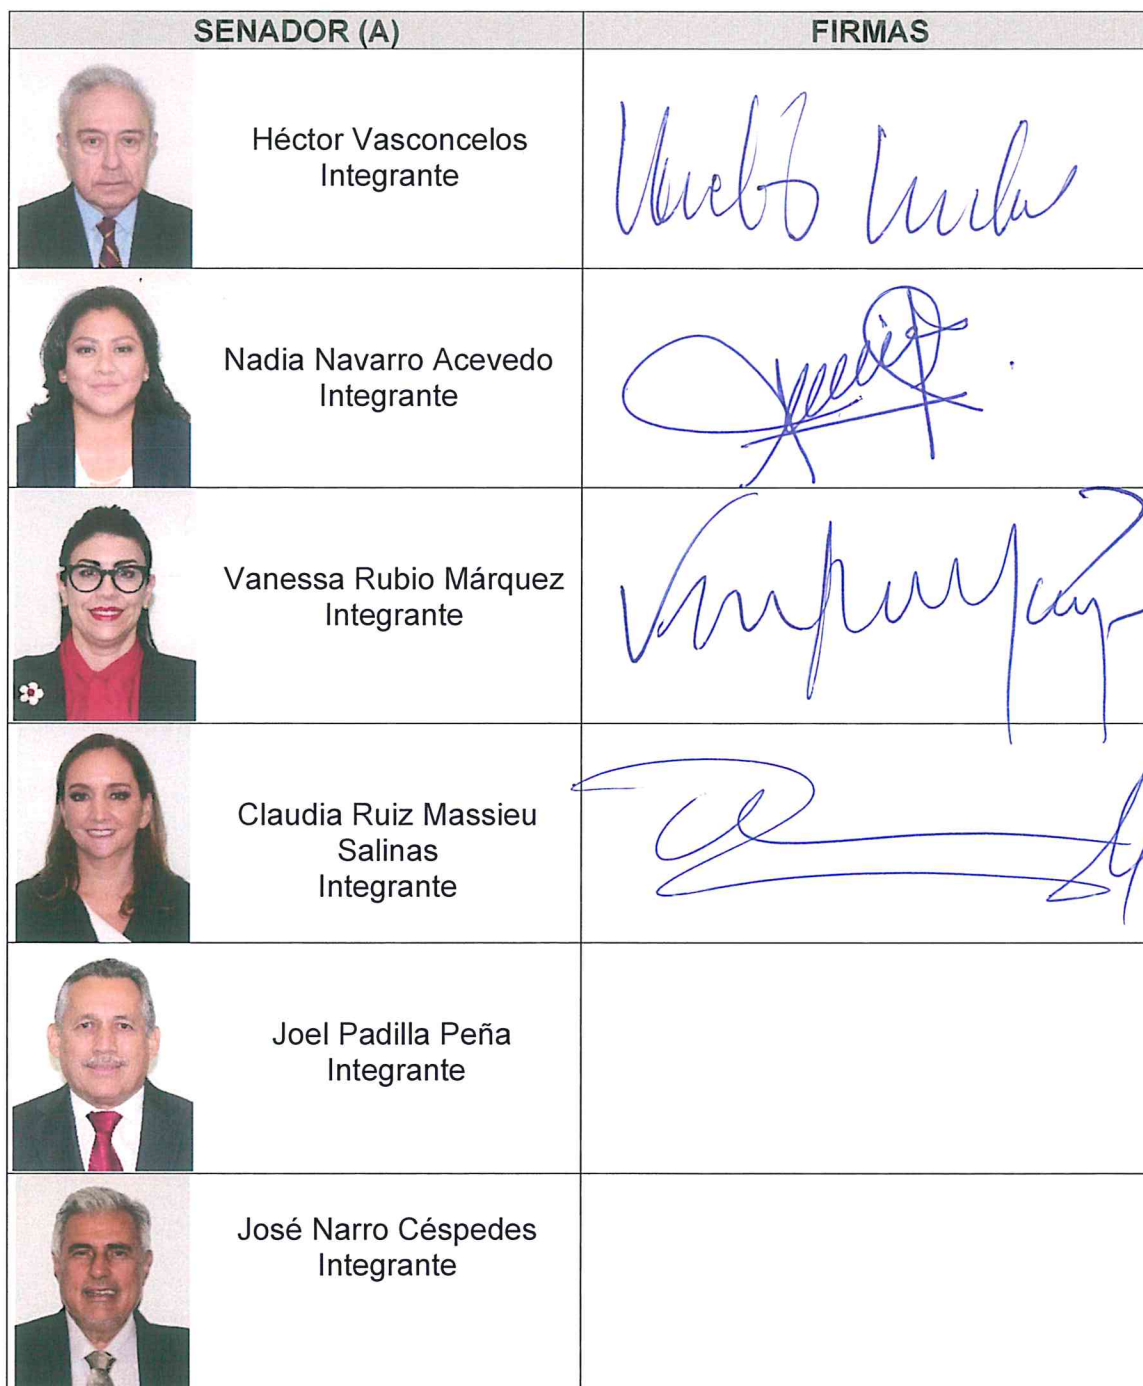 SENADOR (A) FIRMAS
Héctor Vasconcelos
Integrante
Nadia Navarro Acevedo
Integrante
Vanessa Rubio Márquez
Integrante
Claudia Ruiz Massieu
Salinas
Integrante
Joel Padilla Peña
Integrante
José Narro Céspedes
Integrante